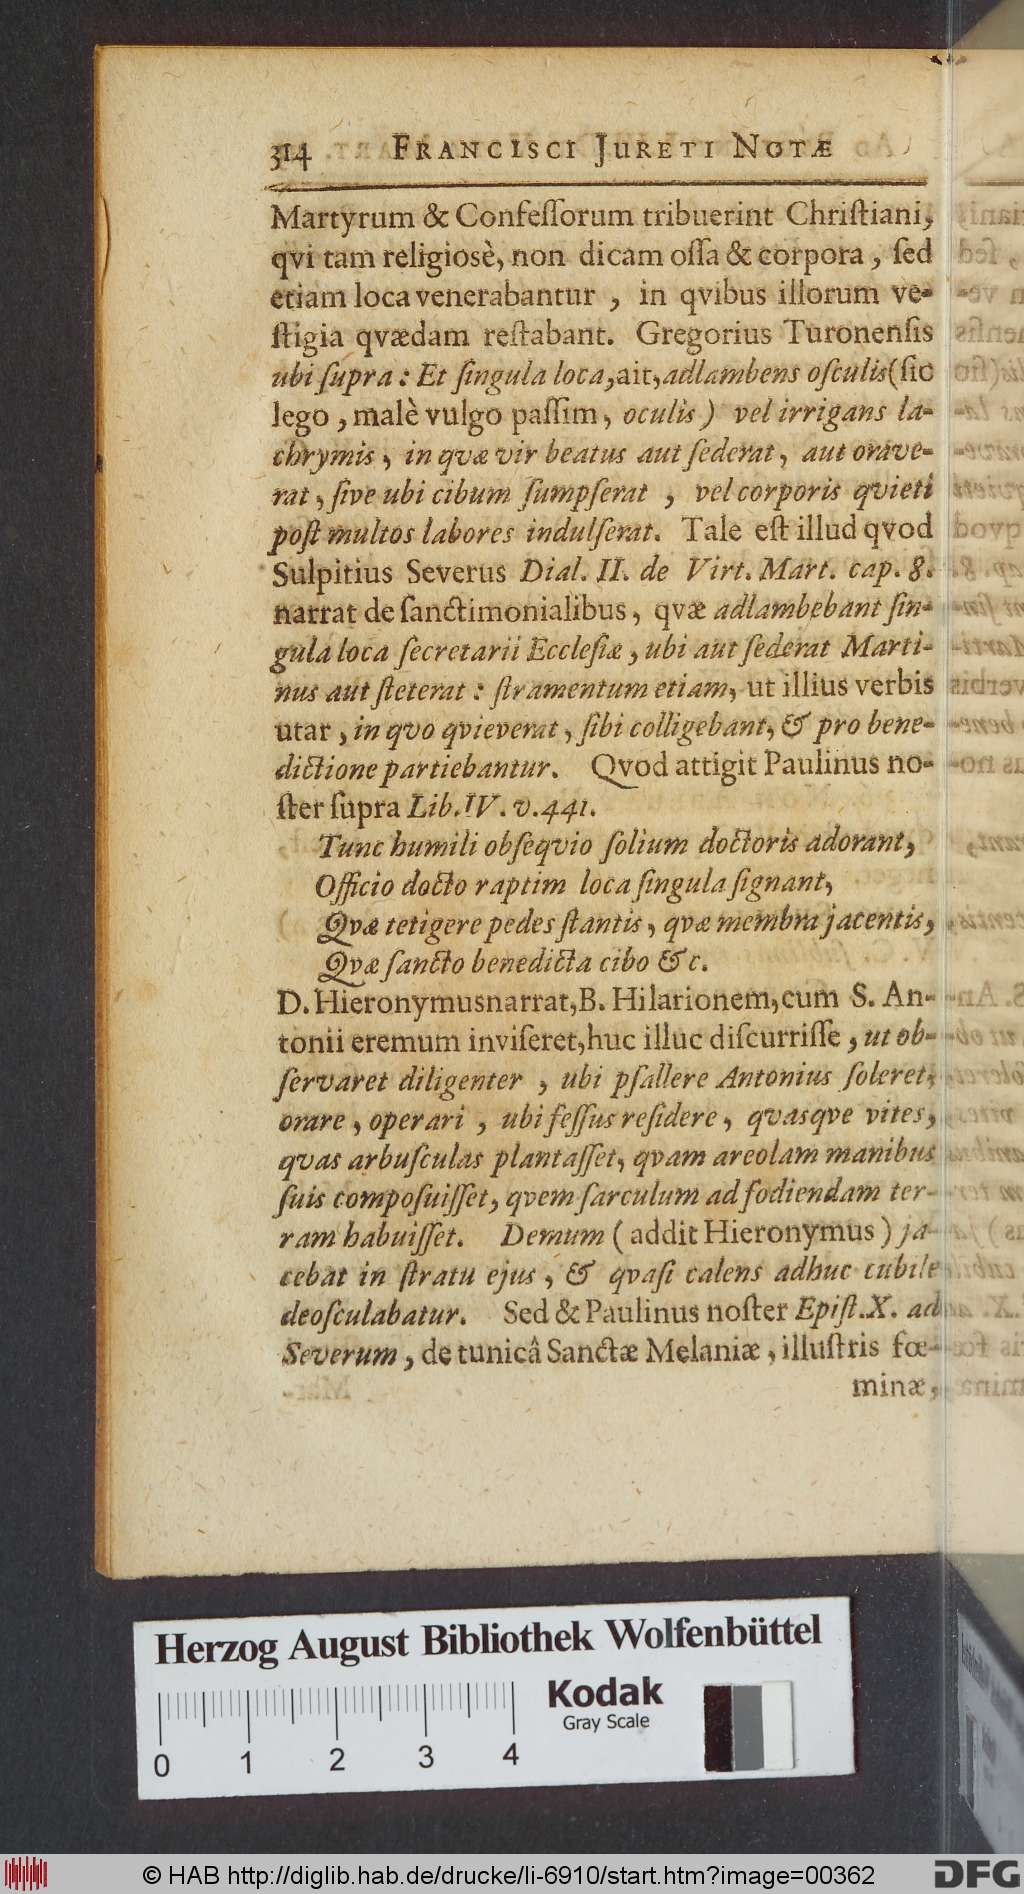 314 FRANCISCI JURETI NOTÆ
Martyrum & Confeſſorum tribuerint Chriſtiani,
qvi tam religiosè, non dicam oſſa & corpora, ſed
etiam loca venerabantur, in qvibus illorum ve-
ſtigia qvædam reſtabant. Gregorius Turonenſis
ubi ſupra: Et ſingula loca, ait, adlambens oſculis (ſic
lego, malè vulgo paſſim, oculis) vel irrigans la-
chrymis, in qvæ vir beatus aut ſederat, aut orave-
rat, ſive ubi cibum ſumpſerat, vel corporis qvieti
poſt multos labores indulſerat. Tale eſt illud qvod
Sulpitius Severus Dial. II. de Virt. Mart. cap. 8.
narrat de ſanctimonialibus, qvæ adlambebant ſin-
gula loca ſecretarii Eccleſiæ, ubi aut ſederat Marti-
nus aut ſteterat: ſtramentum etiam, ut illius verbis
utar, in qvo qvieverat, ſibi colligebant, & pro bene-
dictione partiebantur. Qvod attigit Paulinus no-
ſter ſupra Lib. IV. v. 441.
Tunc humili obſeqvio ſolium doctoris adorant,
Officio docto raptim loca ſingula ſignant,
Qvæ tetigere pedes ſtantis, qvæ membra jacentis,
Qvæ ſancto benedicta cibo &c.
D. Hieronymus narrat, B. Hilarionem, cum S. An-
tonii eremum inviſeret, huc illuc diſcurriſſe, ut ob-
ſervaret diligenter, ubi pſallere Antonius ſoleret,
orare, operari, ubi feſſus reſidere, qvasqve vites,
qvas arbuſculas plantaſſet, qvam areolam manibus
ſuis compoſuiſſet, qvem ſarculum ad fodiendam ter-
ram habuiſſet. Demum (addit Hieronymus) ja-
cebat in ſtratu ejus, & qvaſi calens adhuc cubile
deoſculabatur. Sed & Paulinus noſter Epiſt. X. ad
Severum, de tunicâ Sanctæ Melaniæ, illuſtris fœ-
minæ,
Herzog August Bibliothek Wolfenbüttel
Kodak
Gray Scale
0 1 2 3 4
© HAB http://diglib.hab.de/drucke/li-6910/start.htm?image=00362
DFG